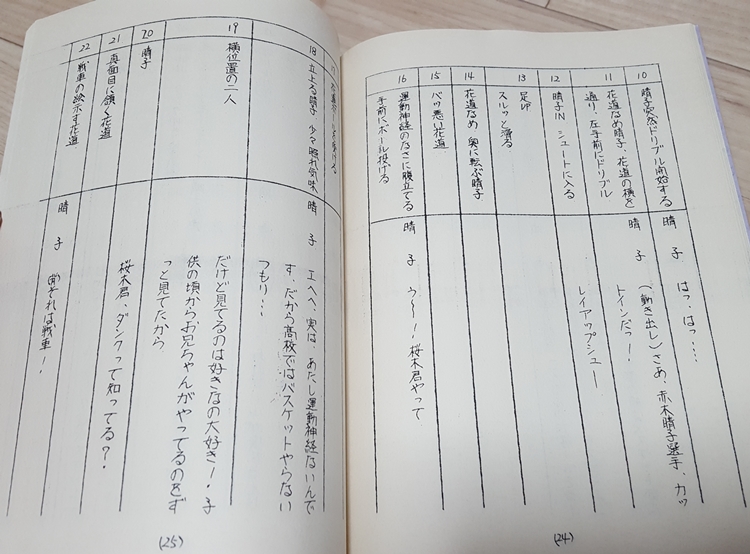 10
晴子突然ドリブル開始する
晴子 はっ、はっ……
11
花道なめ晴子、花道の横を
通り、左手前にドリブル
晴子 (動き出し)さぁ、赤木晴子選手、カッ
トインだっ!
12
晴子IN シュートに入る
レイアップシュー
13
足UP
スルッと滑る
14
花道なめ 奥に転ぶ晴子
15
バツ悪い花道
16
運動神経のなさに腹立てる
手前にボール投げる
晴子 う〜!桜木君やって
(24)
17
18
立上る晴子 少々照れ気味
晴子 エヘヘ、実は、あたし運動神経ないんで
す、だから高校ではバスケットやらない
つもり…
19
横位置の二人
だけど見てるのは好きなの大好き!子
供の頃からお兄ちゃんがやってるのをず
っと見てたから
20
晴子
桜木君、ダンクって知ってる?
21
真面目に頷く花道
22
戦車の絵示す花道
晴子 それは戦車!
(25)